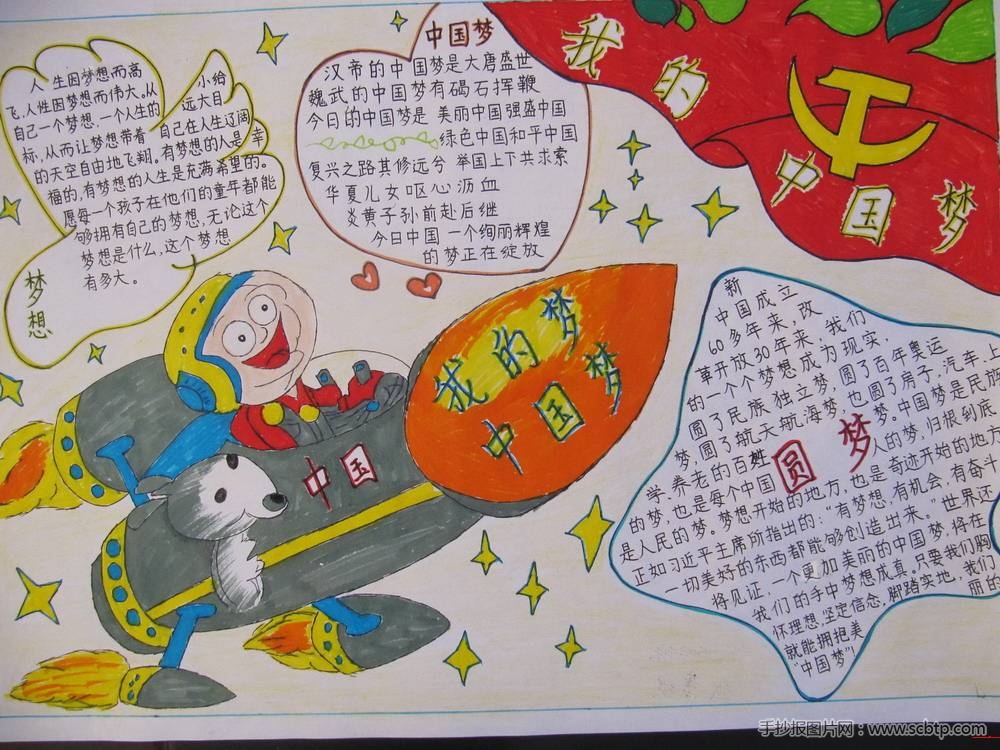 人生因梦想而高
飞,人性因梦想而伟大。从
小给
自己一个梦想,一个人生的
远大目
标,从而让梦想带着
自己在人生辽阔
的天空自由地飞翔。有梦想的人是幸
福的,有梦想的人生是充满希望的。
愿每一个孩子在他们的童年都能
够拥有自己的梦想,无论这个
梦想是什么,这个梦想
有多大。
梦想
中国梦
汉帝的中国梦是大唐盛世
魏武的中国梦有碣石挥鞭
今日的中国梦是 美丽中国强盛中国
绿色中国和平中国
复兴之路其修远兮 举国上下共求索
华夏儿女呕心沥血
炎黄子孙前赴后继
今日中国一个绚丽辉煌
的梦正在绽放
我的
中国梦
我的梦
中国梦
中国
圆梦
新
中国成立
60多年来,改
革开放30年来,我们
的一个个梦想成为现实,
圆了民族独立梦,圆了百年奥运
梦,圆了航天航海梦,也圆了房子,汽车上
学、养老的百姓梦。中国梦是民族
的梦,也是每个中国人的梦,归根到底
是人民的梦。梦想开始的地方,也是奇迹开始的地方
正如习近平主席所指出的:"有梦想,有机会,有奋斗
一切美好的东西都能够创造出来。"世界还
将见证,一个更加美丽的中国梦,将在
我们的手中梦想成真。只要我们胸
怀理想,坚定信念,脚踏实地,我们
就能拥抱美
丽的
"中国梦"!
手抄报图片网:www.scbtp.com